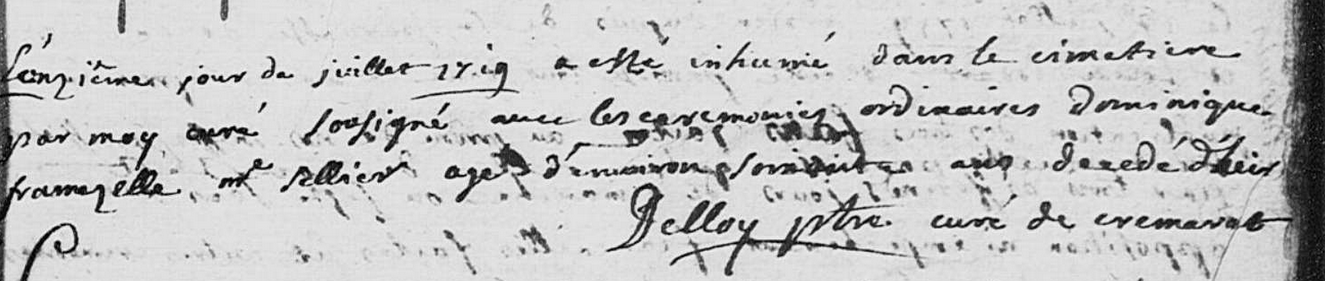 L'onziéme jour de juillet 1719 a esté inhumé dans le cimetiere
par moy curé sousigné avec les ceremonies ordinaires dominique
framezelle mᵉ sellier agé d'environ soixante ans decedé d'heir
Delloy ptre curé de cremarest